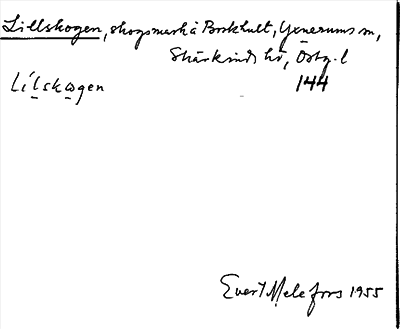 Lillskogen, skogsmark å Borkhult, Yxnerums sn,
Skärkinds hd, Östg. l
Lílskωgen 144
Evert Melefors 1955